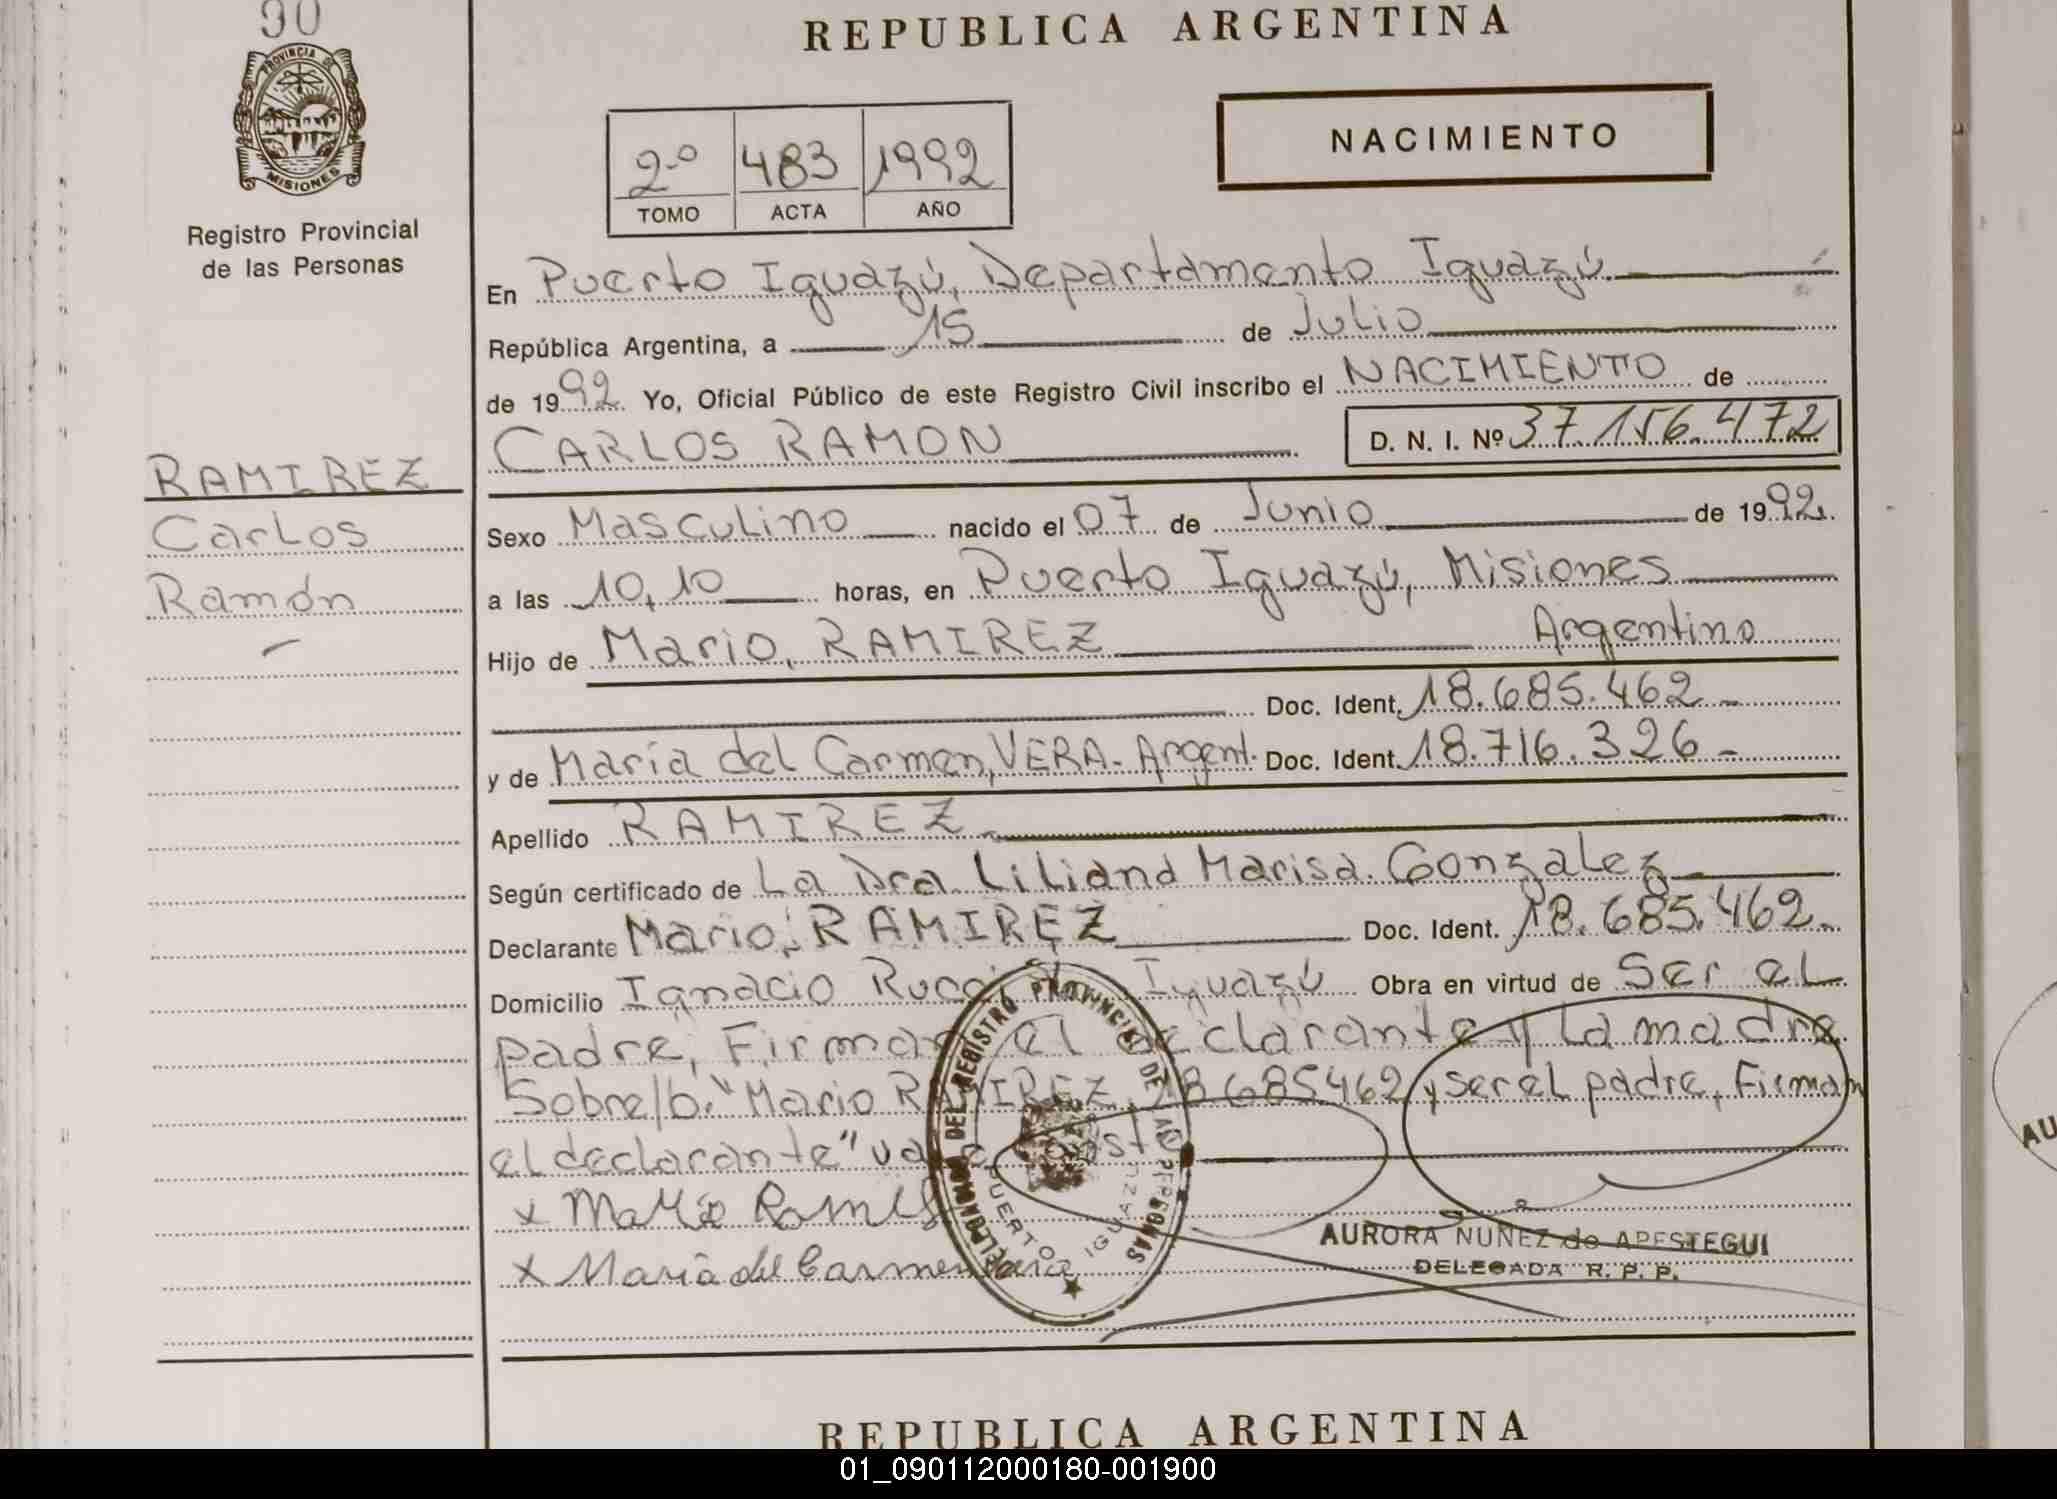 90
PROVINCIA DE
MISIONES
Registro Provincial
de las Personas
RAMIREZ
Carlos
Ramón
REPUBLICA ARGENTINA
NACIMIENTO
2º 483 1992
TOMO ACTA AÑO
En Puerto Iguazú, Departamento Iguazú.
República Argentina, a 15 de Julio
de 1992 Yo, Oficial Público de este Registro Civil inscribo el NACIMIENTO de
CARLOS RAMON D. N. I. Nº 37.156.472
Sexo Masculino nacido el 07 de Junio de 1992.
a las 10,10 horas, en Puerto Iguazú, Misiones
Hijo de Mario, RAMIREZ Argentino
Doc. Ident. 18.685.462-
y de María del Carmen, VERA- Argent. Doc. Ident. 18.716.326-
Apellido RAMIREZ
Según certificado de La Dra. Liliana Marisa. Gonzalez
Declarante Mario, RAMIREZ Doc. Ident. 18.685.462-
Domicilio Ignacio Iguazú Obra en virtud de Ser el
padre, Firman el declarante y la madre.
Sobre/b. "Mario RAMIREZ, 18685462 y ser el padre, Firman
el declarante"
x Mario
x Maria del Carmen
DEL REGISTRO PROVINCIAL DE LAS PERSONAS
PUERTO IGUAZU
AURORA NUÑEZ de APESTEGUI
DELEGADA R. P. P.
REPUBLICA ARGENTINA
AU
01_090112000180-001900